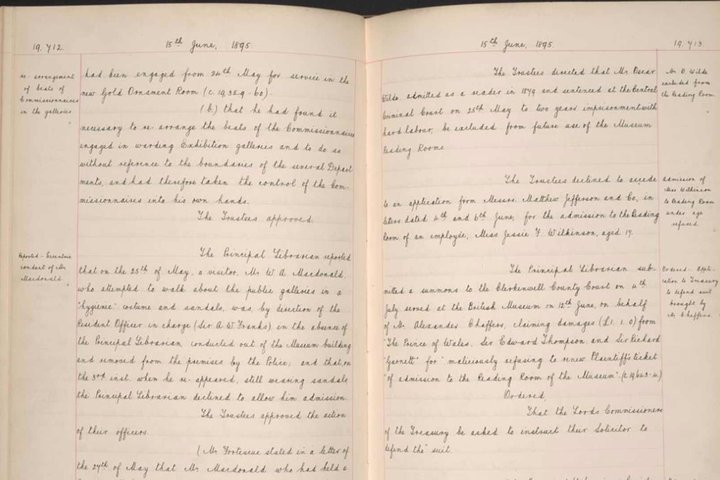 19,712.
15th June, 1895
re-arrangement
of beats of
Commissionnaires
in the galleries
had been engaged from 24th May for service in the
new Gold Ornament Room
(b) that he had found it
necessary to re-arrange the beats of the Commissionnaires
engaged in warding Exhibition galleries and to do so
without reference to the boundaries of the several Depart-
ments, and had therefore taken the control of the Com-
missionnaires into his own hands.
The Trustees approved.
conduct of Mr
Macdonald.
The Principal Librarian reported
that on the 25th of May, a visitor, Mr W. A. Macdonald,
who attempted to walk about the public galleries in a
"hygienic" costume and sandals, was, by direction of the
Resident Officer in charge (Sir A. W. Franks) in the absence of
the Principal Librarian, conducted out of the Museum building
and removed from the premises by the Police; and that, on
the 3rd inst. when he re-appeared, still wearing sandals,
the Principal Librarian declined to allow him admission.
The Trustees approved the action
of their officers.
(Mr Fortescue stated in a letter of
the 27th of May that Mr Macdonald who had held a
15th June, 1895
19,713
The Trustees directed that Mr Oscar
Wilde, admitted as a reader in 1879 and sentenced at the Central
Criminal Court on 25th May to two years imprisonment with
hard labour, be excluded from future use of the Museum
Reading Room.
Mr O. Wilde
excluded from
the Reading Room.
The Trustees declined to accede
to an application from Messrs Matthew Jefferson and Co, in
letters dated 4th and 6th June, for the admission to the Reading
Room of an employee, Miss Jessie F. Wilkinson, aged 19.
Admission of
Miss Wilkinson
to Reading Room
under age
refused.
The Principal Librarian sub-
mitted a summons to the Clerkenwell County Court on 4th
July served at the British Museum on 12th June, on behalf
of Mr Alexander Chaffers, claiming damages (£1. 1. 0) from
"The Prince of Wales, Sir Edward Thompson, and Sir Richard
Garnett" for "maliciously refusing to renew Plaintiff's ticket
of admission to the Reading Room of the Museum"
Ordered
That the Lords Commissioners
of the Treasury be asked to instruct their Solicitor to
defend the suit.
Ordered. Appli-
cation to Treasury
to defend suit
brought by
Mr Chaffers.